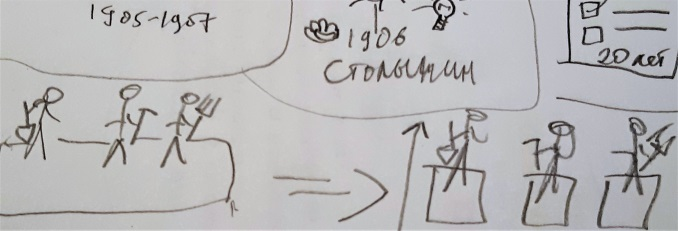 1905-1907
1906
СТОЛЫПИН
20 лет